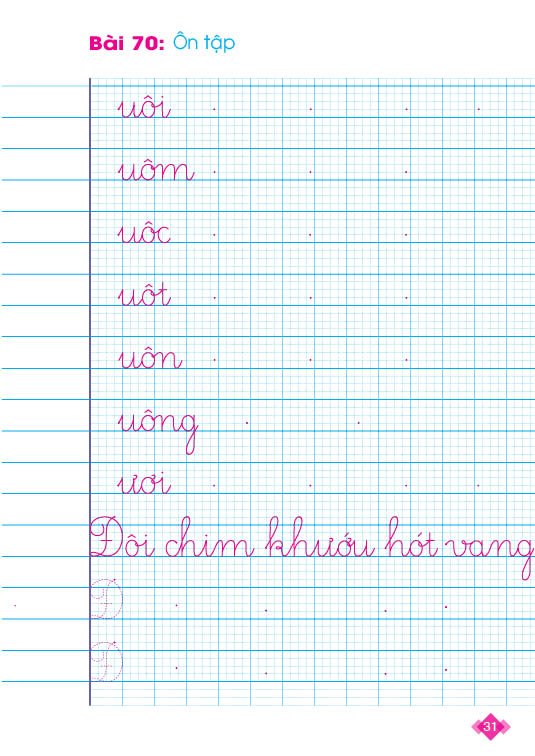 Bài 70: Ôn tập
uôi
uôm
uôc
uôt
uôn
uông
ươi
Đôi chim khướu hót vang
Đ
Đ
31